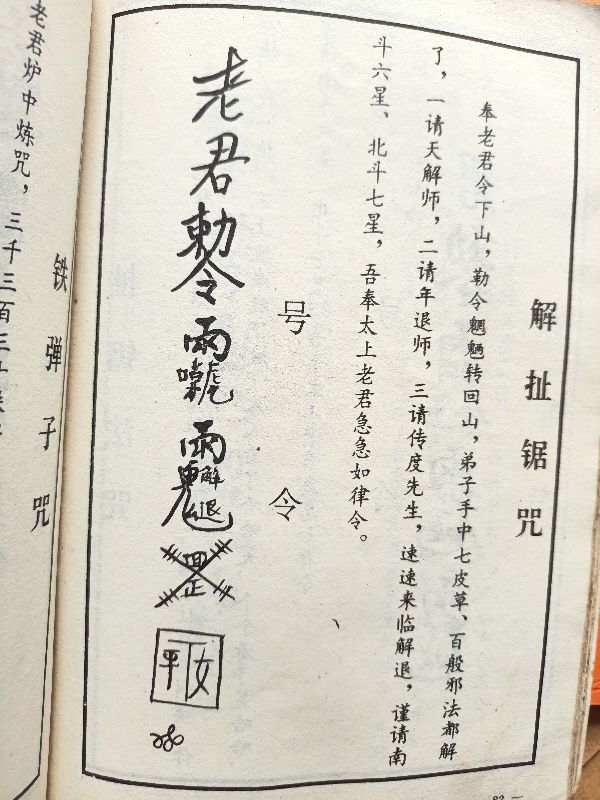 解扯锯咒
奉老君令下山，勒令魍魉转回山，弟子手中七皮草、百般邪法都解
了，一请天解师，二请年退师，三请传度先生，速速来临解退，谨请南
斗六星、北斗七星，吾奉太上老君急急如律令。
号令
老君敕令
雨
雨
解退
平 女
铁弹子咒
老君炉中炼咒，三千三百三